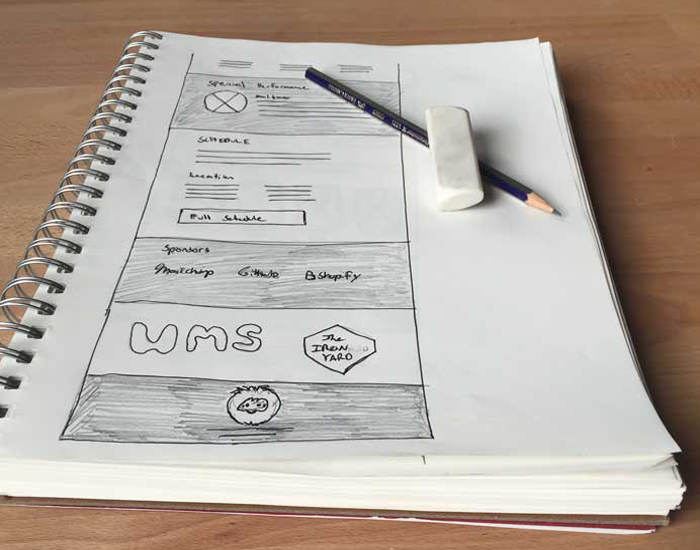 Special Performance
SCHEDULE
Location
Full Schedule
Sponsors
Mailchimp GitHub Shopify
UMS
The
IRON
YARD